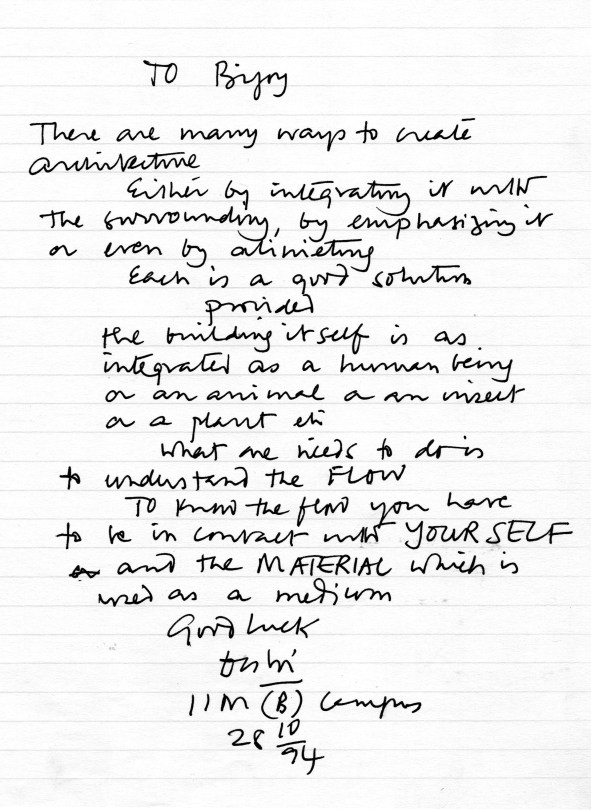 TO Bijoy
There are many ways to create
architecture
Either by integrating it with
the surrounding, by emphasizing it
or even by
Each is a good solution
provided
the building itself is as
integrated as a human being
or an animal or an insect
or a plant etc
What one needs to do is
to understand the FLOW
To know the flow you have
to be in contact with YOURSELF
and the MATERIAL which is
used as a medium
Good luck
Doshi
IIM (B) Campus
28 10/94